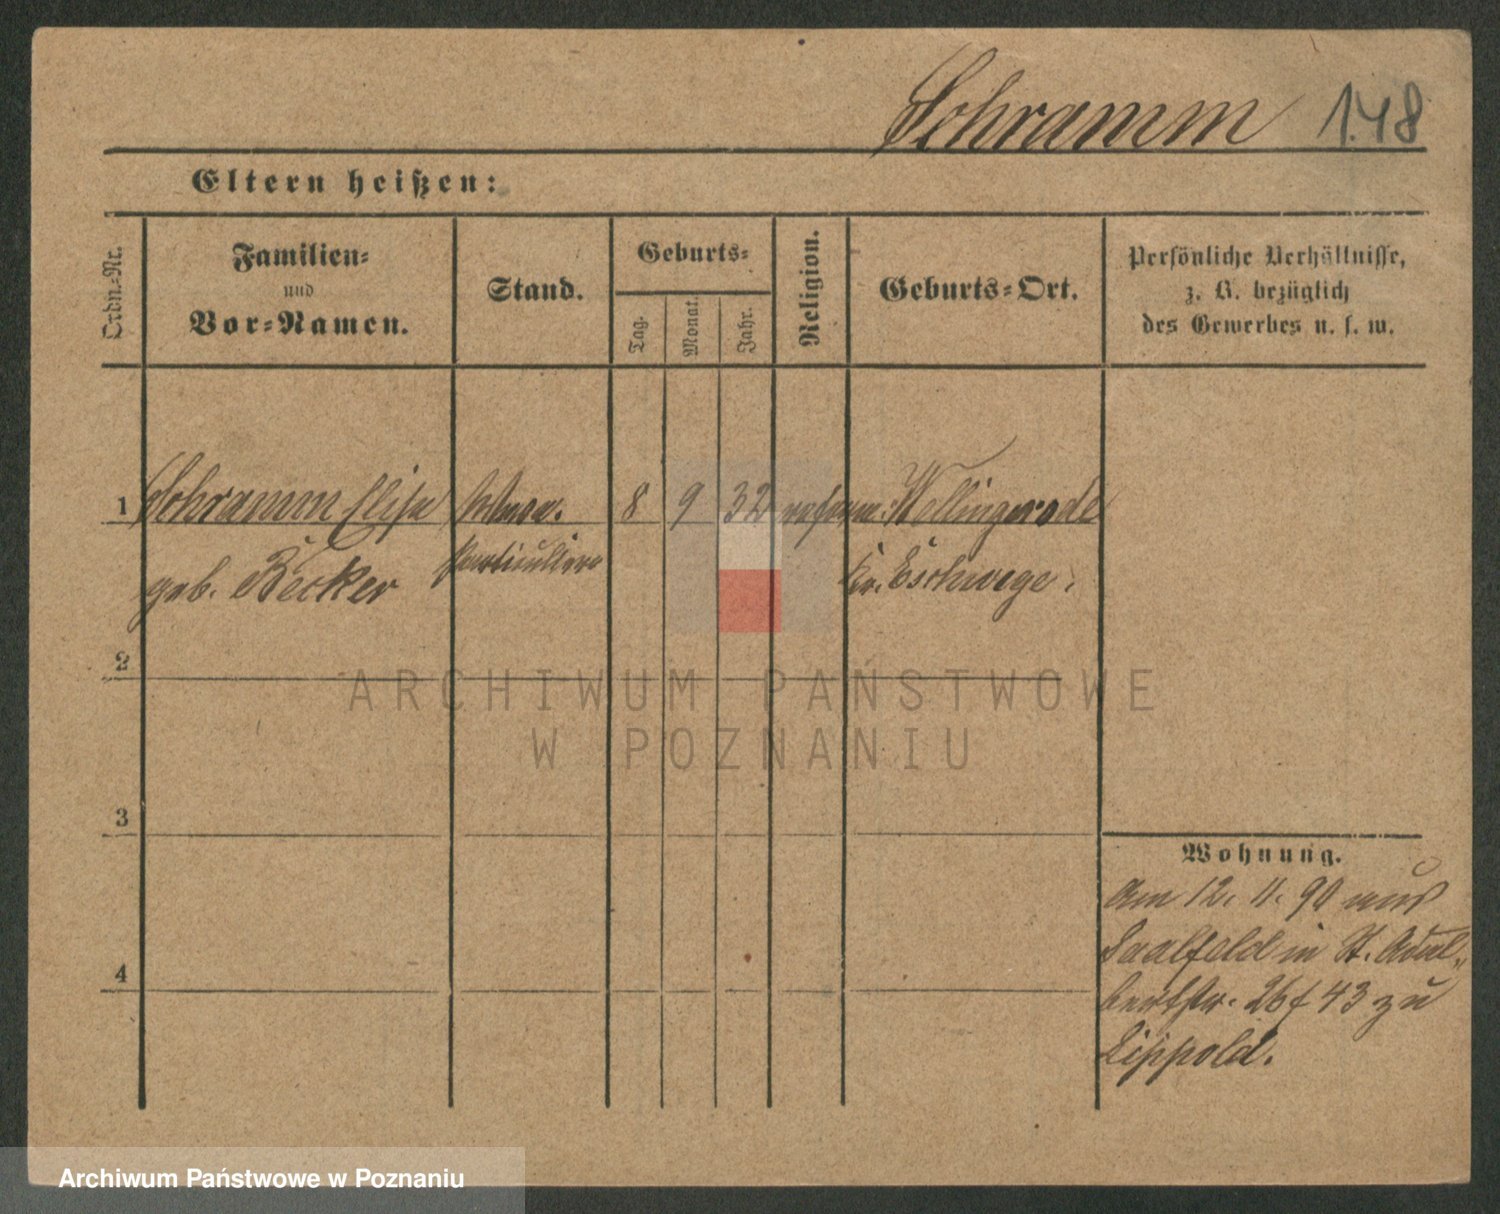 Schramm 148
Eltern heißen:
Ordn.-Nr.
Familien-
und
Vor-Namen.
Stand.
Geburts-
Tag.
Monat.
Jahr.
Religion.
Geburts-Ort.
Persönliche Verhältnisse,
z. B. bezüglich
des Gewerbes u. s. w.
1 Schramm Elise Wwe. 8 9 32 reform. Wellingerode
geb. Becker Particuliere Kr. Eschwege.
2
3
4
Wohnung.
Am 12. 11. 90 aus
Saalfeld in St. Adal-
bertstr. 26/43 zu
Lippold.
ARCHIWUM PAŃSTWOWE
W POZNANIU
Archiwum Państwowe w Poznaniu